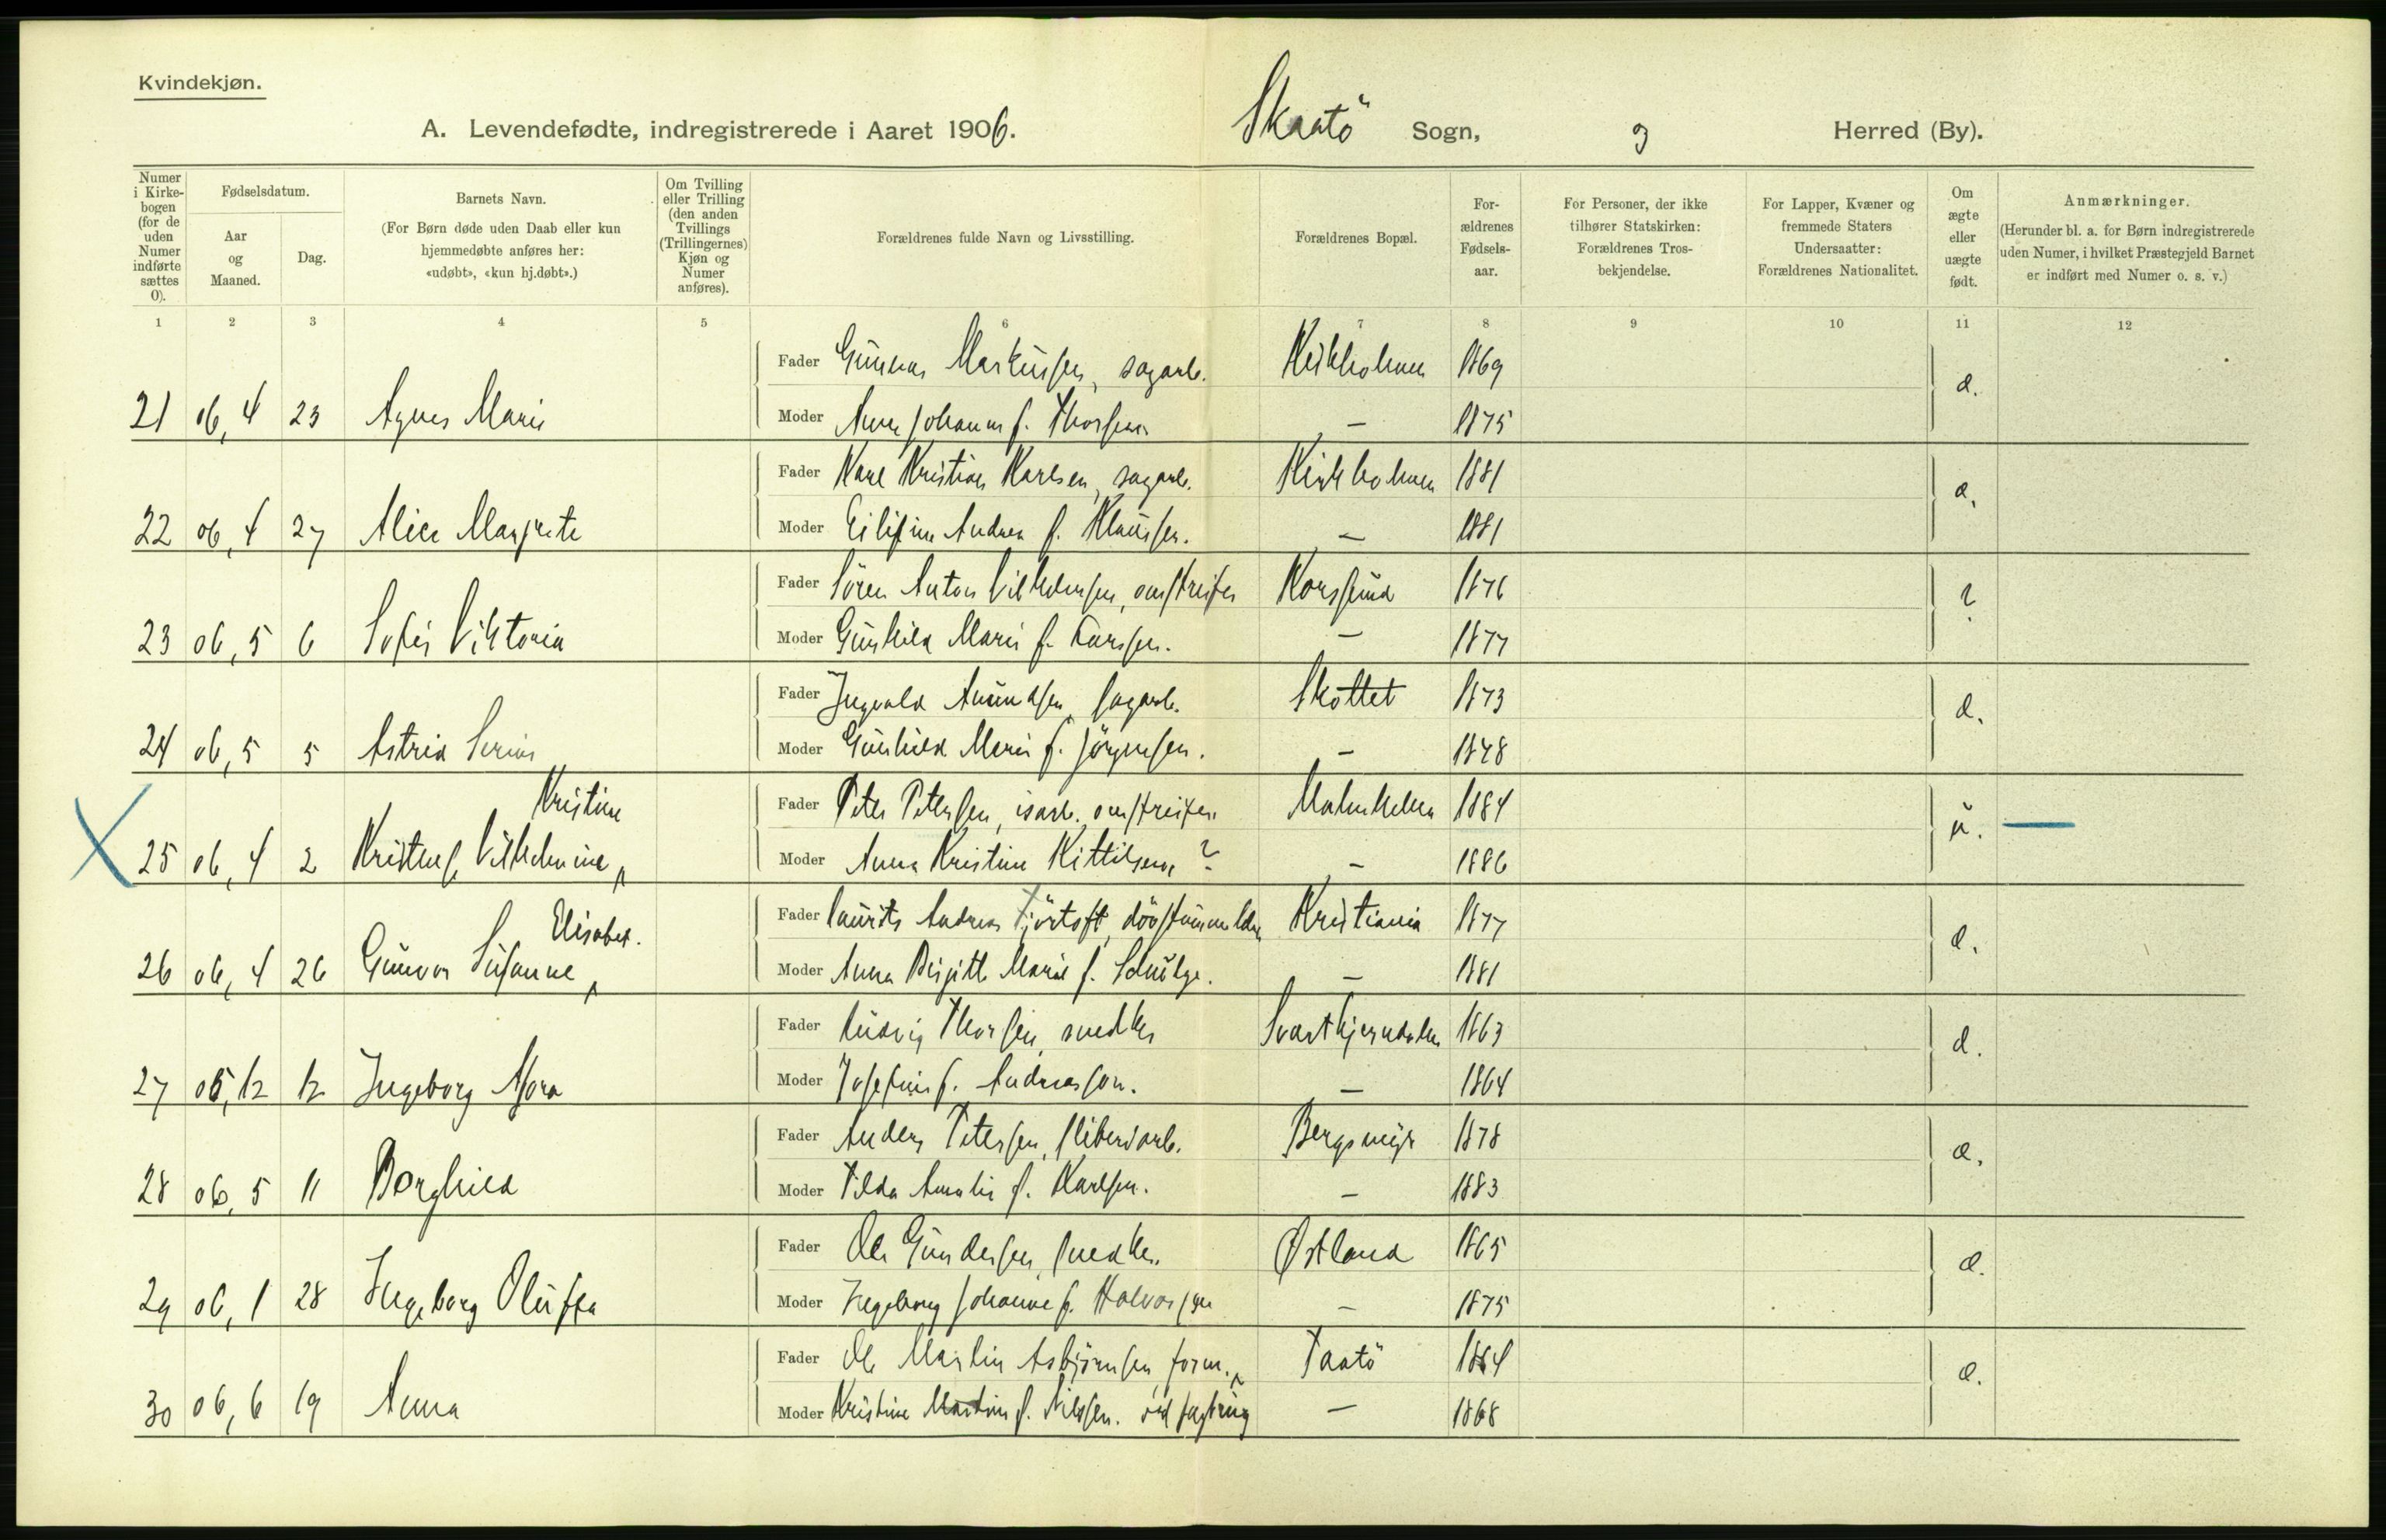 Kvindekjøn.
A. Levendefødte, indregistrerede i Aaret 1906. Skaatö Sogn, og Herred (By).
Numer i Kirkebogen (for de uden Numer indførte sættes 0).
Fødselsdatum.
Aar og Maaned.
Dag.
Barnets Navn.
(For Børn døde uden Daab eller kun hjemmedøbte anføres her: «udøbt», «kun hj.døbt».)
Om Tvilling eller Trilling (den anden Tvillings (Trillingernes) Kjøn og Numer anføres).
Forældrenes fulde Navn og Livsstilling.
Forældrenes Bopæl.
Forældrenes Fødselsaar.
For Personer, der ikke tilhører Statskirken: Forældrenes Trosbekjendelse.
For Lapper, Kvæner og fremmede Staters Undersaatter: Forældrenes Nationalitet.
Om ægte eller uægte født.
Anmærkninger.
(Herunder bl. a. for Børn indregistrerede uden Numer, i hvilket Præstegjeld Barnet er indført med Numer o. s. v.)
1 2 3 4 5 6 7 8 9 10 11 12
Fader Gunnar Markussen, sagarb. Kirkholmen 1869
21 06,4 23 Agnes Marie Moder Anne Johanne f. Thorsen — 1875 æ.
Fader Karl Kristian Karlsen, sagarb. Kirkholmen 1881
22 06,4 27 Alice Margrete Moder Andrea f. Klausen. — 1881 æ.
Fader Sören Anton Vilhelmsen, omstreifer Korssund 1876
23 06,5 6 Sofie Viktoria Moder Gunhild Marie f. Larssen. — 1877 ?
Fader Ingvald Amundsen, sagarb. Skottet 1873
24 06,5 5 Astrid Moder Gunhild Marie f. Jörgensen. — 1878 æ.
Kristine
Fader Peter Petersen, isarb. omstreifer 1884
25 06,4 2 Vilhelmine Moder Anna Kristine Kittilsen ? — 1886 u. —
Elisabet.
Fader Laurits Andreas Fjörtoft, Kristiania 1877
26 06,4 26 Gunvor Susanne Moder Anna Birgitte Marie f. — 1881 æ.
Fader Ludvig Thorsen, snedker 1863
27 05,12 12 Ingeborg Moder Josefine f. Andreasson. — 1864 æ.
Fader Anders Petersen, sliberiarb. Bergsmyr 1878
28 06,5 11 Borghild Moder Tilda Amalie f. Karlsen. — 1883 æ.
Fader Ole Gundersen, snedker. Østland 1865
29 06,1 28 Ingeborg Oluffa Moder Ingeborg Johanne f. Halvorsen — 1875 æ.
Fader Ole Martin Asbjörnsen, form. Taatö 1864
30 06,6 19 Anna Moder Kristine f. Nilssen. ved — 1868 æ.